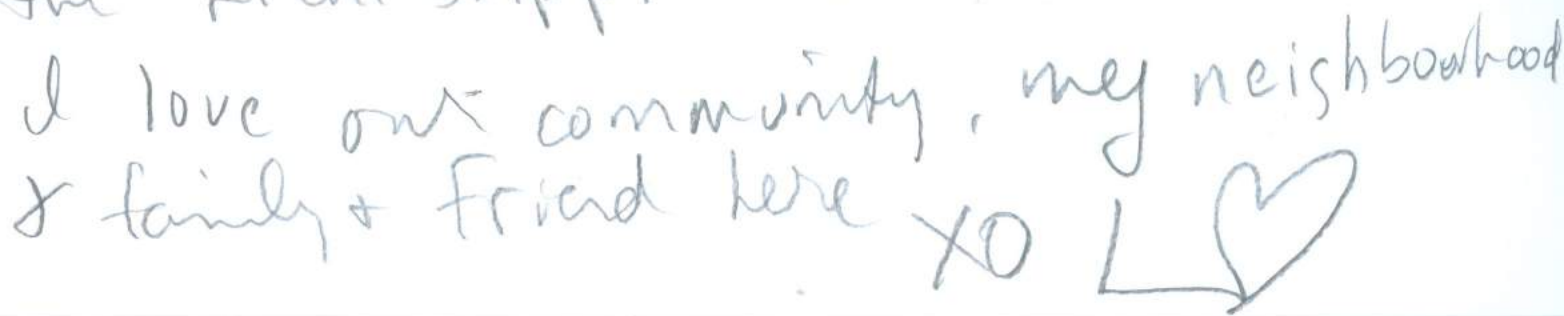 the
I love our community, my neighbourhood
& family & Friend here XO L